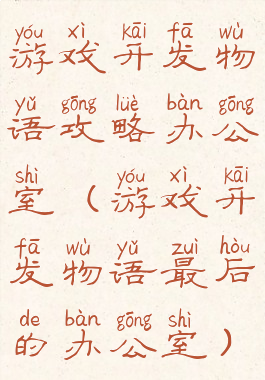 yóu xì kāi fā wù
游戏开发物
yǔ gōng lüè bàn gōng
语攻略办公
shì yóu xì kāi
室（游戏开
fā wù yǔ zuì hòu
发物语最后
de bàn gōng shì
的办公室）